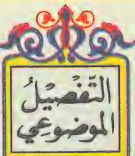 التَّفْصِيْلُ
المَوضُوعِي